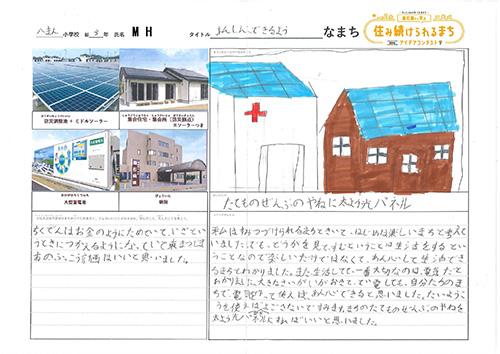 八まん 小学校 3年 氏名 M H
タイトル あんしんできるよう なまち
住み続けられるまち
アイデアコンテスト
防災調整池 + ミドルソーラー
集合住宅・集会所(防災拠点)
大型蓄電池
病院
たてものぜんぶのやねに太よう光パネル
ちくでんはお金のようにためていて、いざとい
うときにつかえるようになっていて
いいと思いました。
私はすみつづけられるまちときいて、はじめは楽しいまちと考えて
いました。でも、どうがを見て、すむということは生活をするとい
うことなので楽しいだけではなくて、あん心して生活でき
るまちとわかりました。また、生活していて一番大切なのは、電気だと
わかりました。大きなさいがいがおきて、てい電しても、自分たちのま
ちで電気を作って使えば、あん心できると思いました。たいようこ
うを使えばよごさないですみます。まちのたてものぜんぶのやねを
太よう光パネルにすればいいと思いました。